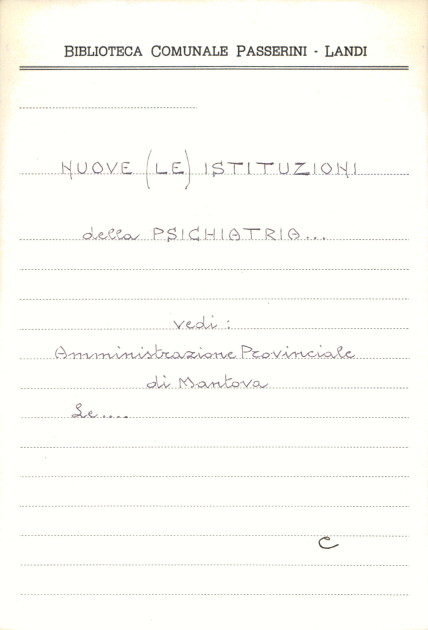 BIBLIOTECA COMUNALE PASSERINI - LANDI
NUOVE (LE) ISTITUZIONI
della PSICHIATRIA...
vedi :
Amministrazione Provinciale
di Mantova
Le....
C